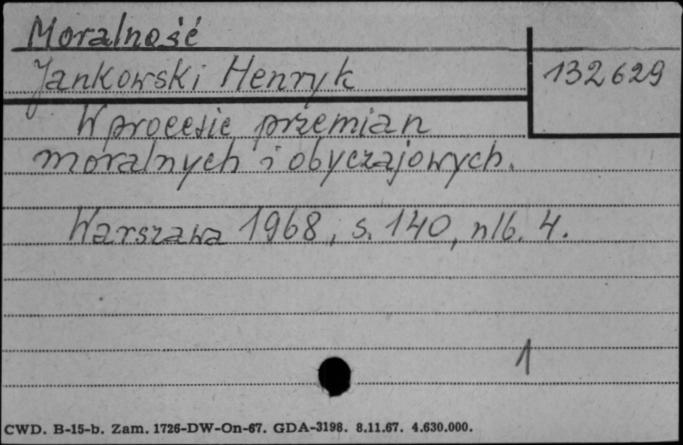 Moralność
Jankowski Henryk
132629
W procesie przemian
moralnych i obyczajowych.
Warszawa 1968, s. 140, nlb. 4.
1
CWD. B-15-b. Zam. 1726-DW-On-67. GDA-3198. 8.11.67. 4.630.000.